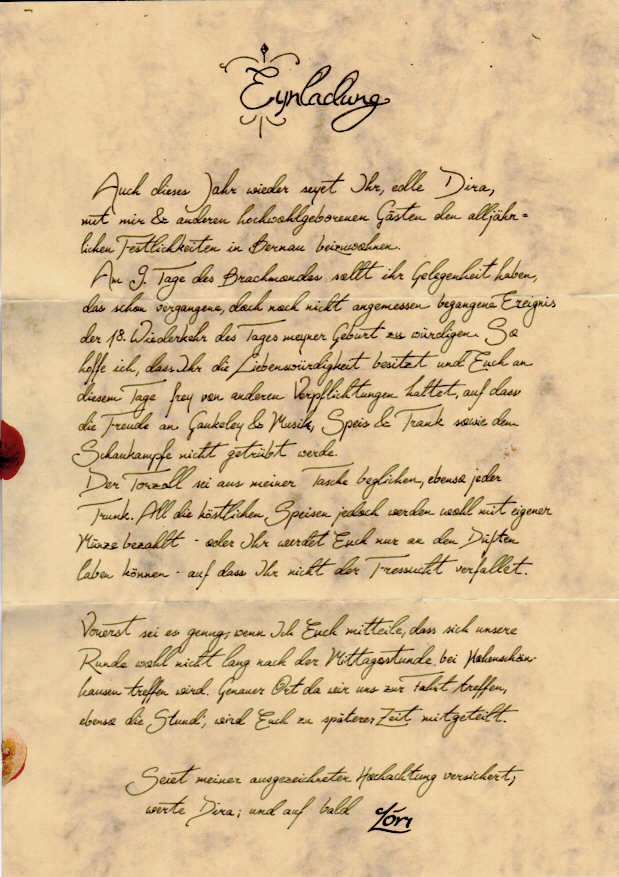 Eynladung
Auch dieses Jahr wieder seyet Ihr, edle Dira,
mit mir & anderen hochwohlgeborenen Gästen den alljähr=
lichen Festlichkeiten in Bernau beizuwohnen.
Am 9. Tage des Brachmondes sollt ihr Gelegenheit haben,
das schon vergangene, doch noch nicht angemessen begangene Ereignis
der 18. Wiederkehr des Tages meyner Geburt zu würdigen. So
hoffe ich, dass Ihr die Liebenswürdigkeit besitzt und Euch an
diesem Tage frey von anderen Verpflichtungen haltet, auf dass
die Freude an Gaukeley & Musik, Speis & Trank sowie dem
Schaukampfe nicht getrübt werde.
Der Torzoll sei aus meiner Tasche beglichen, ebenso jeder
Trunk. All die köstlichen Speisen jedoch werden wohl mit eigener
Münze bezahlt - oder Ihr werdet Euch nur an den Düften
laben können - auf dass Ihr nicht der Fresssucht verfallet.
Vorerst sei es genug, wenn Ich Euch mitteile, dass sich unsere
Runde wohl nicht lang nach der Mittagsstunde bei Hohenschön-
hausen treffen wird. Genauer Ort da wir uns zur Fahrt treffen,
ebenso die Stund', wird Euch zu späterer Zeit mitgeteilt.
Seiet meiner ausgezeichneter Hochachtung versichert,
werte Dira; und auf bald Lóri